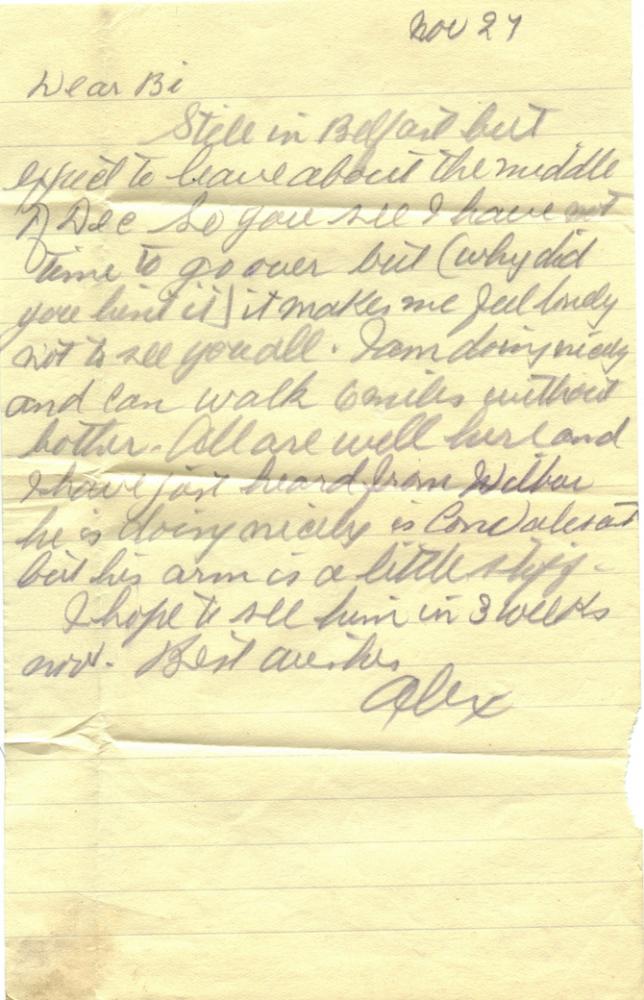 Nov 27
Dear Bi
Still in Belfast but
expect to leave about the middle
of Dec So you see I have not
time to go over but (why did
you hint it) it makes me feel lonely
not to see you all. I am doing nicely
and can walk 6 miles without
bother. All are well here and
I have just heard from Wilbur
he is doing nicely is Convalescent
but his arm is a little stiff.
I hope to see him in 3 weeks
now. Best wishes
Alex